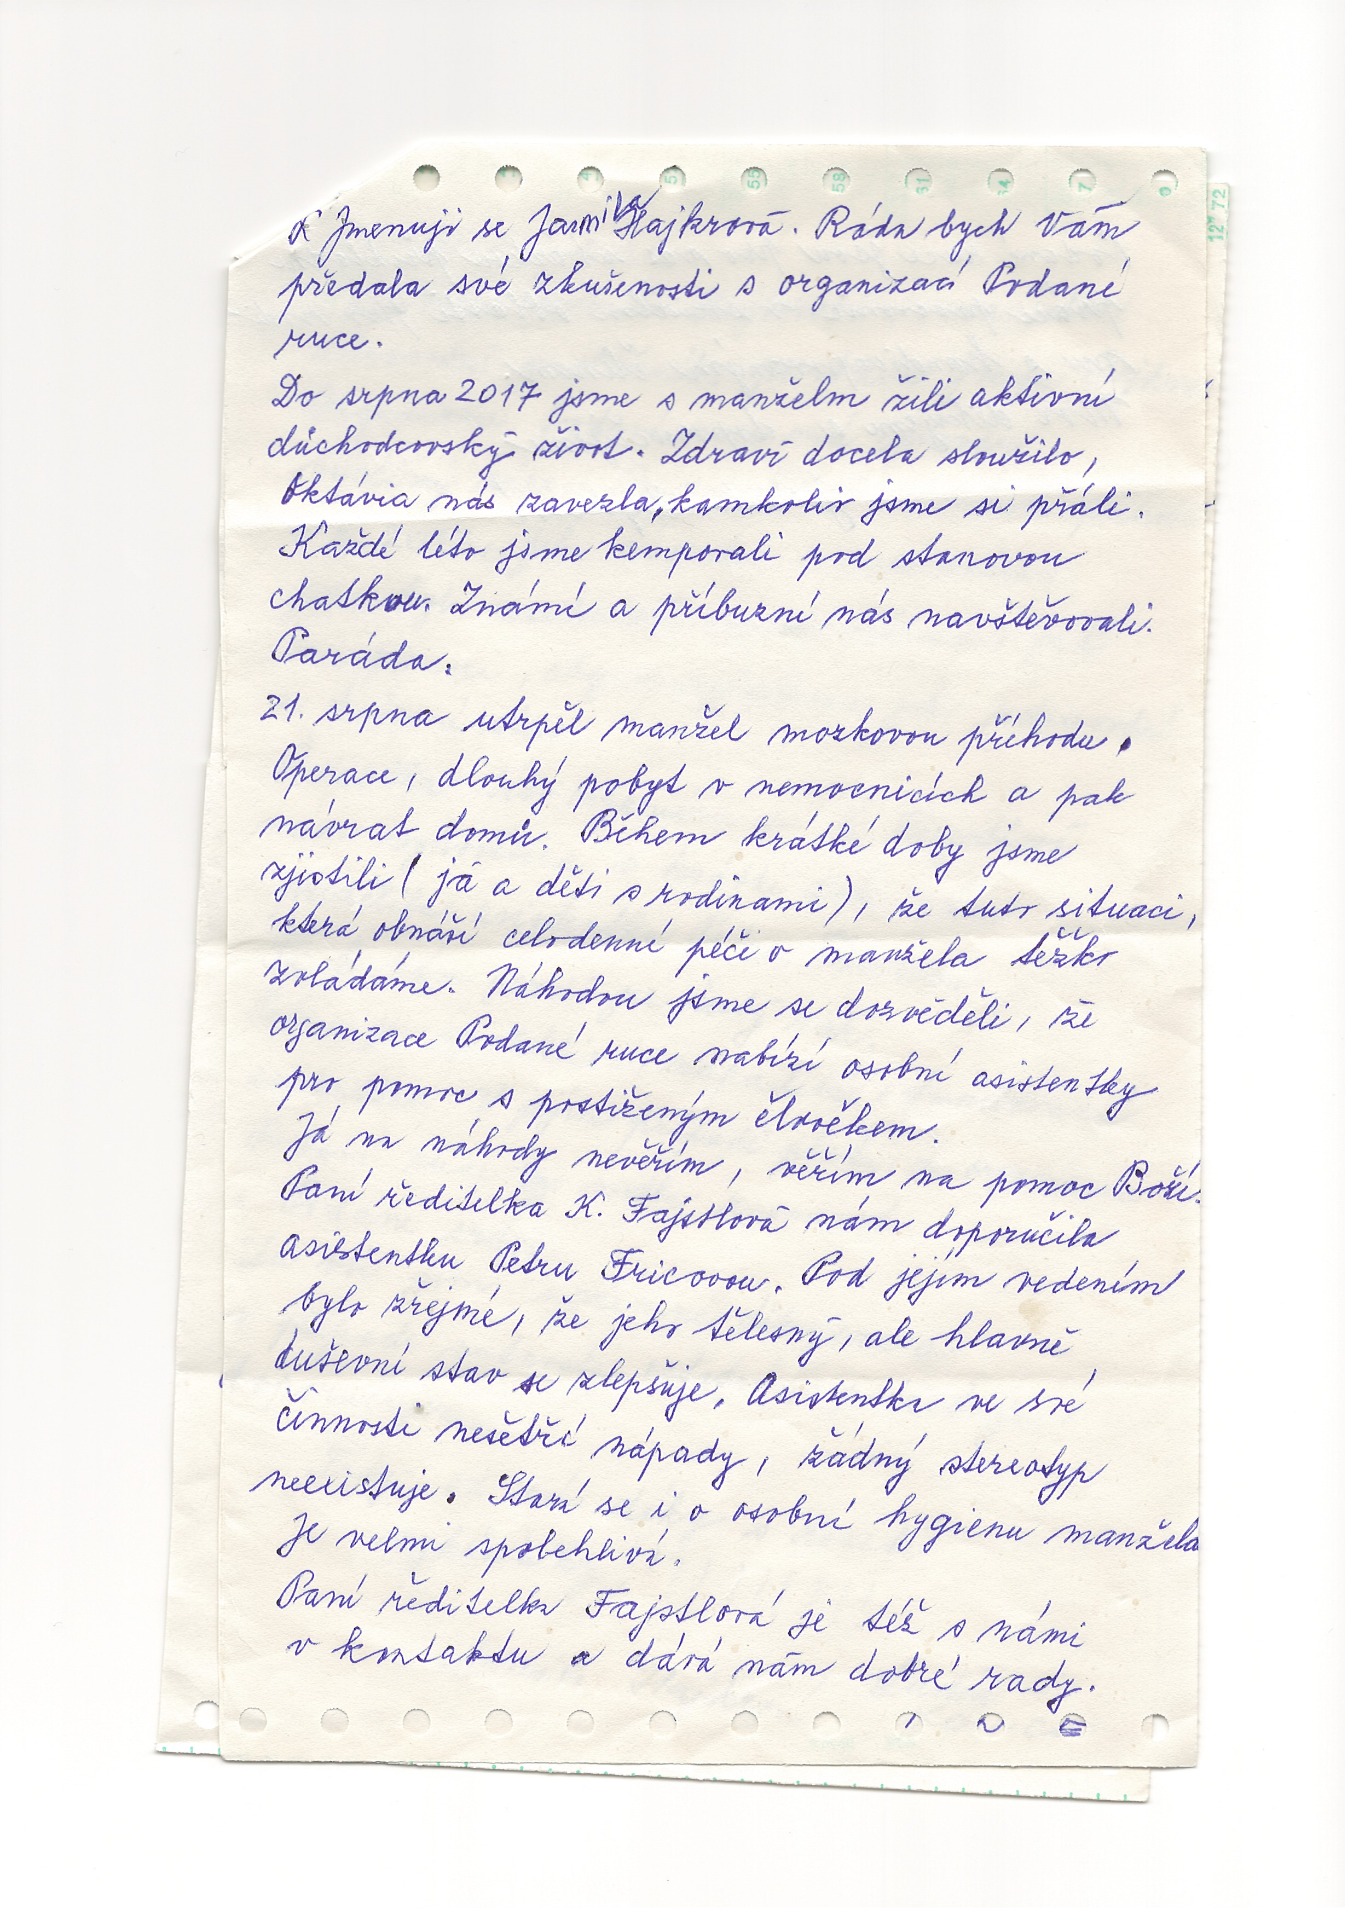 Jmenuji se Jarmila Hajkrová. Ráda bych Vám
předala své zkušenosti s organizací Podané
ruce.
Do srpna 2017 jsme s manželm žili aktivní
důchodcovský život. Zdraví docela sloužilo,
Oktávia nás zavezla, kamkoliv jsme si přáli.
Každé léto jsme kempovali pod stanovou
chatkou. Známí a příbuzní nás navštěvovali.
Paráda.
21. srpna utrpěl manžel mozkovou příhodu.
Operace, dlouhý pobyt v nemocnicích a pak
návrat domů. Během krátké doby jsme
zjistili (já a děti s rodinami), že tuto situaci,
která obnáší celodenní péči o manžela těžko
zvládáme. Náhodou jsme se dozvěděli, že
organizace Podané ruce nabízí osobní asistentky
pro pomoc s postiženým člověkem.
Já na náhody nevěřím, věřím na pomoc Boží.
Paní ředitelka K. Fajstlová nám doporučila
asistentku Petru Fricovou. Pod jejím vedením
bylo zřejmé, že jeho tělesný, ale hlavně
duševní stav se zlepšuje. Asistentka ve své
činnosti nešetří nápady, žádný stereotyp
neexistuje. Stará se i o osobní hygienu manžela
Je velmi spolehlivá.
Paní ředitelka Fajstlová je též s námi
v kontaktu a dává nám dobré rady.